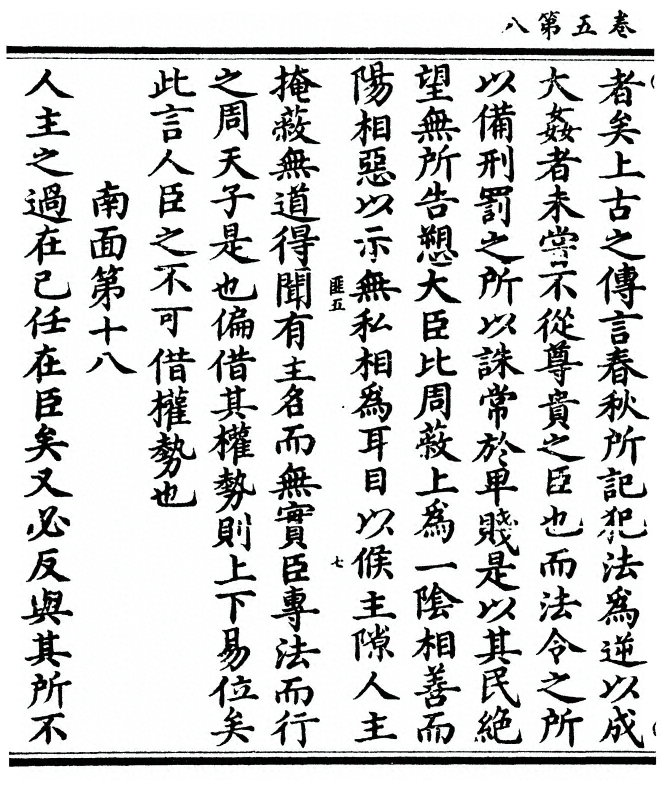 卷五第八
者矣上古之傳言春秋所記犯法爲逆以成
大姦者未嘗不從尊貴之臣也而法令之所
以備刑罰之所以誅常於卑賤是以其民絕
望無所告愬大臣比周蔽上爲一陰相善而
陽相惡以示無私相爲耳目以候主隙人主
匪五
七
掩蔽無道得聞有主名而無實臣專法而行
之周天子是也偏借其權勢則上下易位矣
此言人臣之不可借權勢也
南面第十八
人主之過在己任在臣矣又必反與其所不